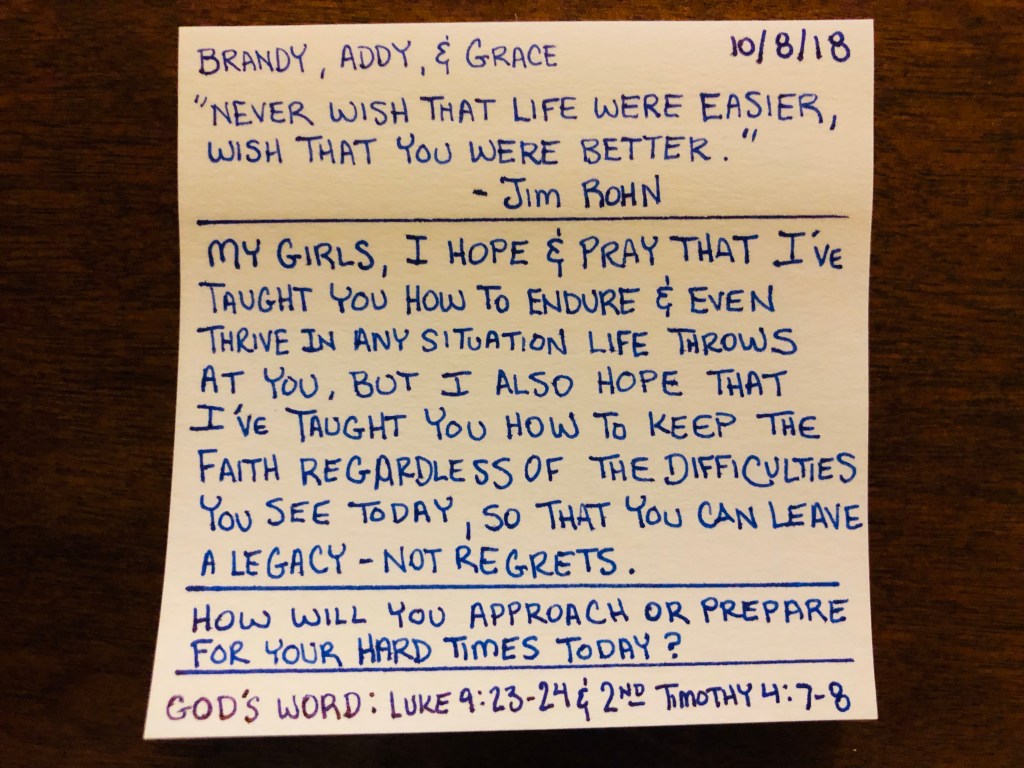 BRANDY, ADDY, & GRACE 10/8/18
"NEVER WISH THAT LIFE WERE EASIER,
WISH THAT YOU WERE BETTER."
- JIM ROHN
MY GIRLS, I HOPE & PRAY THAT I'VE
TAUGHT YOU HOW TO ENDURE & EVEN
THRIVE IN ANY SITUATION LIFE THROWS
AT YOU, BUT I ALSO HOPE THAT
I'VE TAUGHT YOU HOW TO KEEP THE
FAITH REGARDLESS OF THE DIFFICULTIES
YOU SEE TODAY, SO THAT YOU CAN LEAVE
A LEGACY - NOT REGRETS.
HOW WILL YOU APPROACH OR PREPARE
FOR YOUR HARD TIMES TODAY?
GOD'S WORD: LUKE 9:23-24 & 2ND TIMOTHY 4:7-8